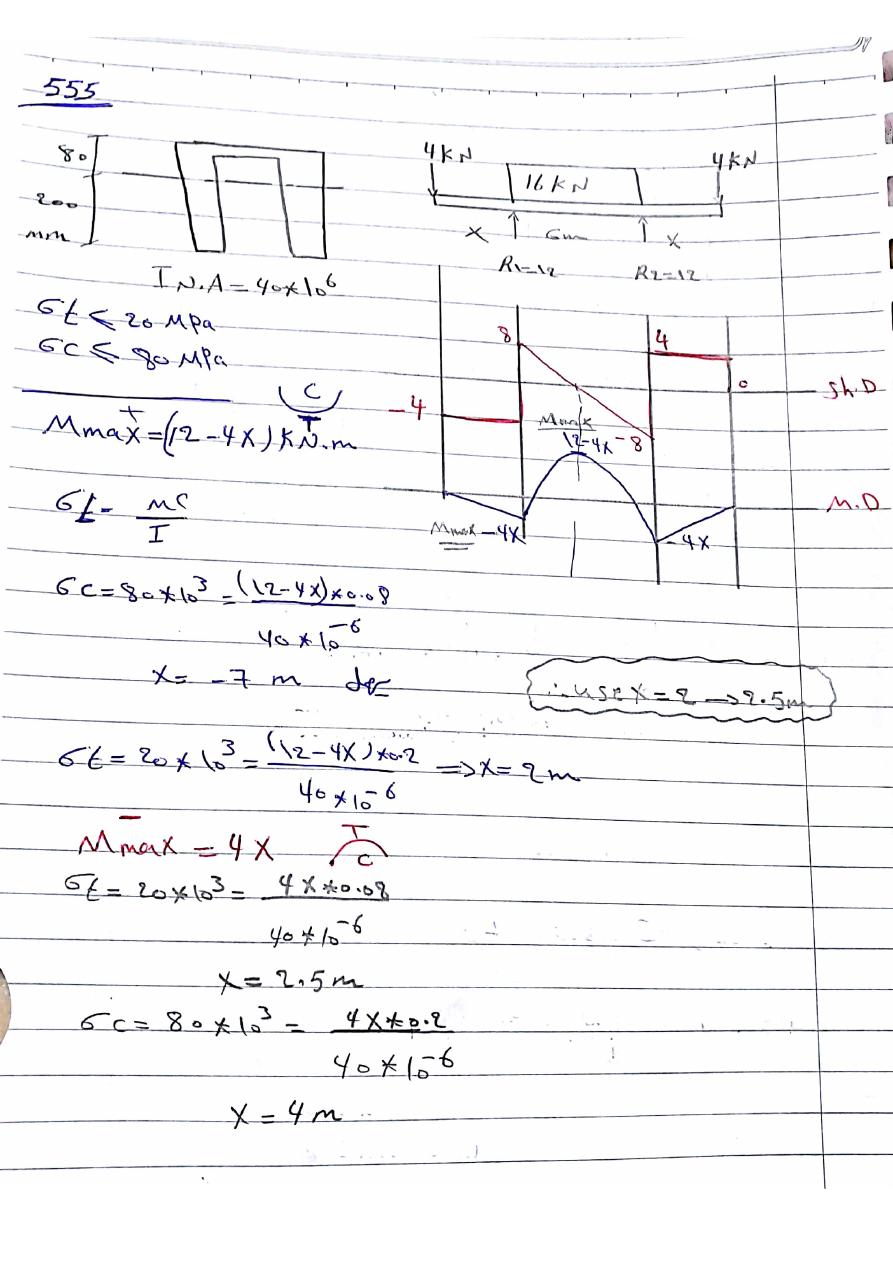 555
80
200
mm
I N.A = 40*10⁶
4KN
4KN
16 KN
X 6m X
R1=12 R2=12
σt ≤ 20 MPa
σc ≤ 80 MPa
8
4
-4
0
Sh.D
Mmax
12-4X
-8
C
T
Mmax⁺ = (12-4X) KN.m
M.D
Mmax -4X
-4X
σt = MC/I
σc = 80*10³ = (12-4X)*0.08 / 40*10⁻⁶
X = -7 m
∴ use X = 2 → 2.5m
σt = 20*10³ = (12-4X)*0.2 / 40*10⁻⁶ ⇒ X = 2m
Mmax⁻ = 4X
T
C
σt = 20*10³ = 4X*0.08 / 40*10⁻⁶
X = 2.5 m
σc = 80*10³ = 4X*0.2 / 40*10⁻⁶
X = 4 m